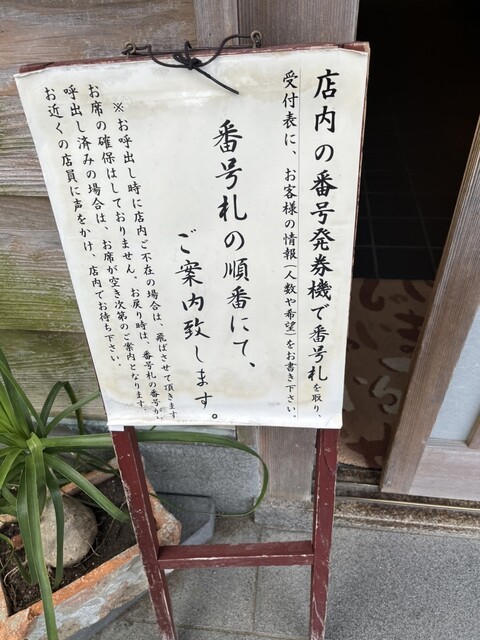 店内の番号発券機で番号札を取り、
受付表に、お客様の情報(人数や希望)をお書き下さい。
番号札の順番にて、
ご案内致します。
※お呼出し時に店内ご不在の場合は、飛ばさせて頂きます
お席の確保はしておりません。お戻り時は、番号札の番号が
呼出し済みの場合は、お席が空き次第のご案内となります。
お近くの店員に声をかけ、店内でお待ち下さい。